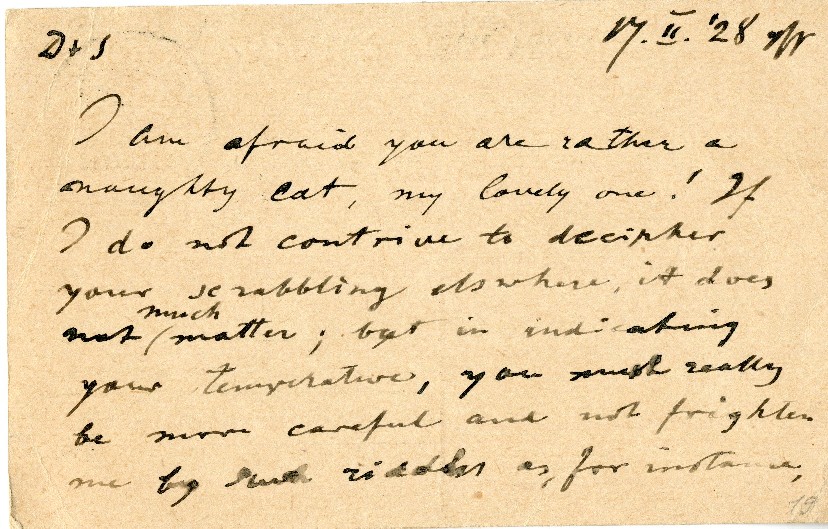 D+S 17. II. '28
I am afraid you are rather a
naughty cat, my lovely one! If
I do not contrive to decipher
your scrabbling elswhere, it does
not much matter; but in indicating
your temperature, you must really
be more careful and not frighten
me by such riddles as, for instance,
19